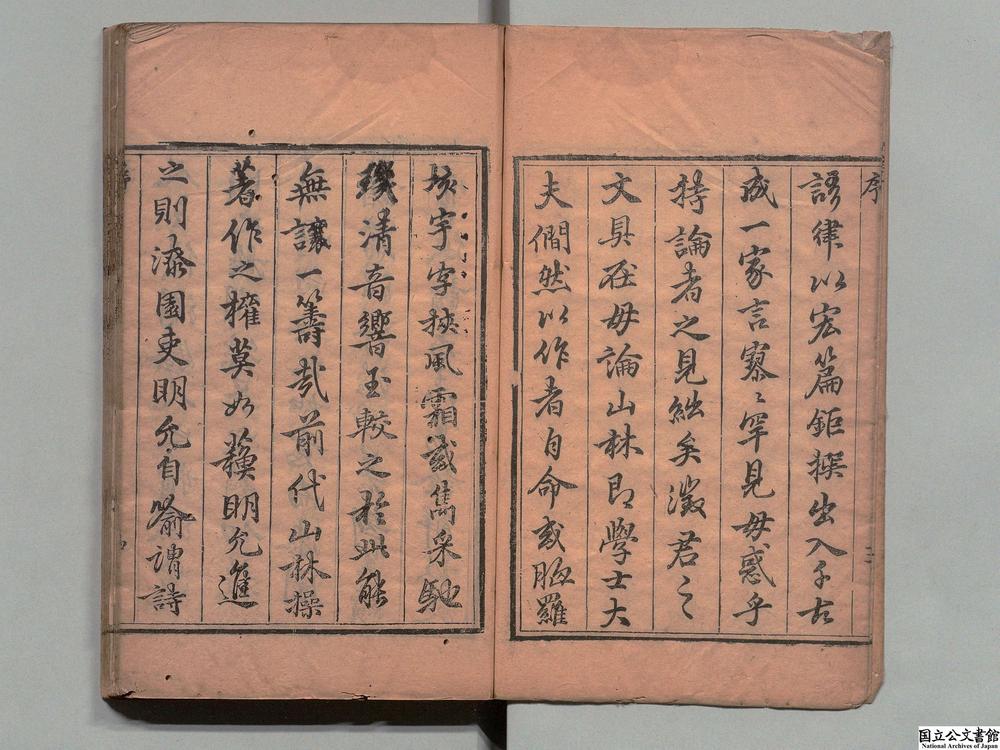 序
語律以宏篇鉅撰出入千古
成一家言寥〻罕見毋惑乎
持論者之見絀矣澂君之
文具在毋論山林即學士大
夫僴然以作者自命或胸羅
垓宇字挾風霜或雋采馳
珠清音響玉較之於此能
無讓一籌哉前代山林操
著作之權莫如蘇明允進
之則漆園吏明允自喻謂詩
国立公文書館
National Archives of Japan